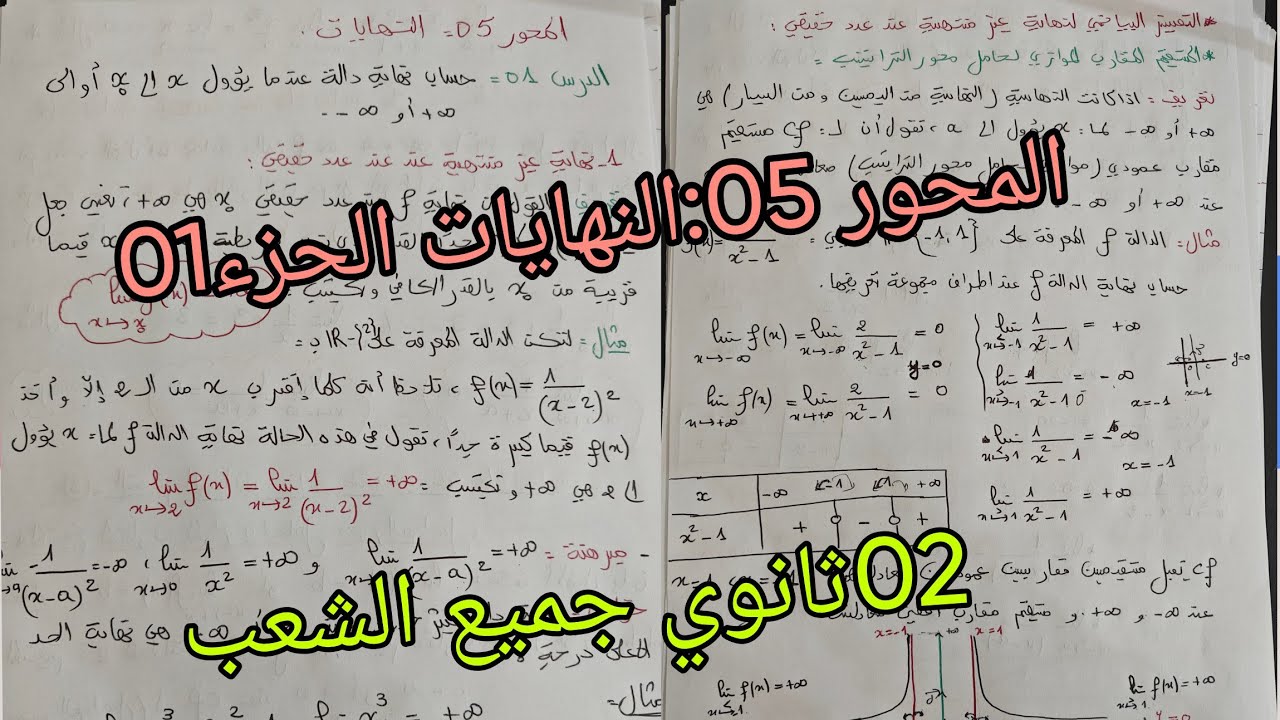 المحور 05= النهايات.
الدرس 01= حساب نهاية دالة عندما يؤول x إلى x₀ أو إلى
+∞ أو -∞
1- نهاية غير منتهية عند عند عدد حقيقي:
قريبة من x₀ بالقدر الكافي ونكتب
lim f(x)
x→x₀
مثال= لتكن الدالة f المعرفة على IR-{2} ب=
f(x)=1/(x-2)²، نلاحظ أنه كلما إقترب x من الـ 2 إلا وأخذ
f(x) قيما كبيرة جداً، نقول في هذه الحالة نهاية الدالة f لما= x يؤول
إلى 2 هي +∞ و نكتب= lim x→2 f(x) = lim x→2 1/(x-2)² = +∞
- مبرهنة =
lim 1/(x-a)² = +∞ و lim x→0 1/x² = +∞، lim x→a -1/(x-a)² = -∞
هي نهاية الحد
الأعلى درجة
مثال=
*التفسير البياني لنهاية غير منتهية عند عدد حقيقي:
*المستقيم المقارب الموازي لحامل محور التراتيب=
تعريف= اذا كانت النهاية (النهاية من اليمين و من اليسار) هي
+∞ أو -∞ لما: x يؤول إلى a، نقول أن لـ: Cf مستقيم
مقارب عمودي (موازي لحامل محور التراتيب)
عند +∞ أو -∞
مثال: الدالة f المعرفة على {-1,1}
x²-1
حساب نهاية الدالة f عند اطراف مجموعة تعريفها.
lim x→-∞ f(x) = lim x→-∞ 2/(x²-1) = 0
y=0
lim x→+∞ f(x) = lim x→+∞ 2/(x²-1) = 0
lim x→-1 1/(x²-1) = +∞
lim x→-1 1/(x²-1) = -∞
x=-1
lim x→1 1/(x²-1) = -∞
x=-1
lim x→1 1/(x²-1) = +∞
y=0
x=-1
x -∞ -1 1 +∞
x²-1 + 0 - 0 +
Cf يقبل مستقيمين مقاربين عموديين
عند -∞ و +∞ و مستقيم مقارب أفقي
x=-1 x=1
lim f(x)=+∞
lim f(x)=+∞
المحور 05:النهايات الحزء01
02ثانوي جميع الشعب